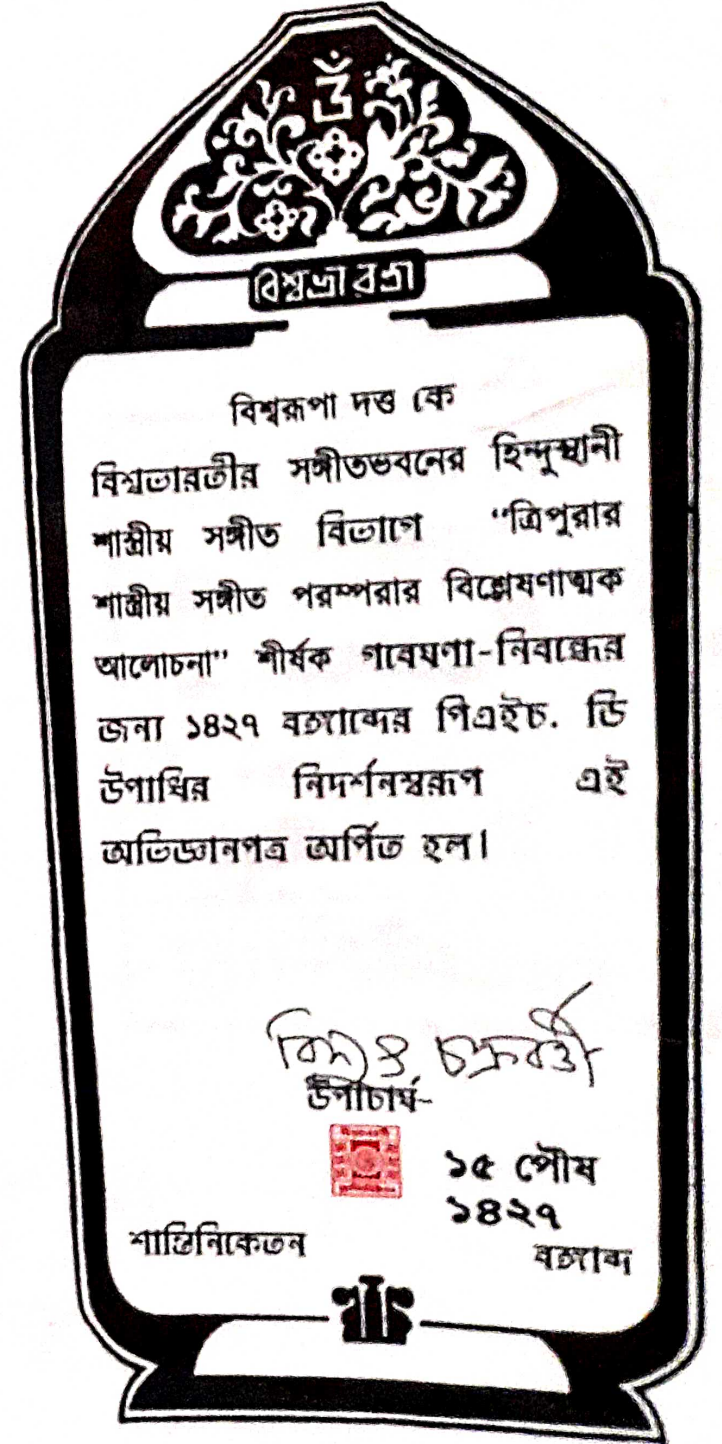 ওঁ
বিশ্বভারতী
বিশ্বরূপা দত্ত কে
বিশ্বভারতীর সঙ্গীতভবনের হিন্দুস্থানী
শাস্ত্রীয় সঙ্গীত বিভাগে “ত্রিপুরার
শাস্ত্রীয় সঙ্গীত পরম্পরার বিশ্লেষণাত্মক
আলোচনা” শীর্ষক গবেষণা-নিবন্ধের
জন্য ১৪২৭ বঙ্গাব্দের পিএইচ. ডি
উপাধির নিদর্শনস্বরূপ এই
অভিজ্ঞানপত্র অর্পিত হল।
চক্রবর্ত্তী
উপাচার্য-
১৫ পৌষ
১৪২৭
শান্তিনিকেতন বঙ্গাব্দ